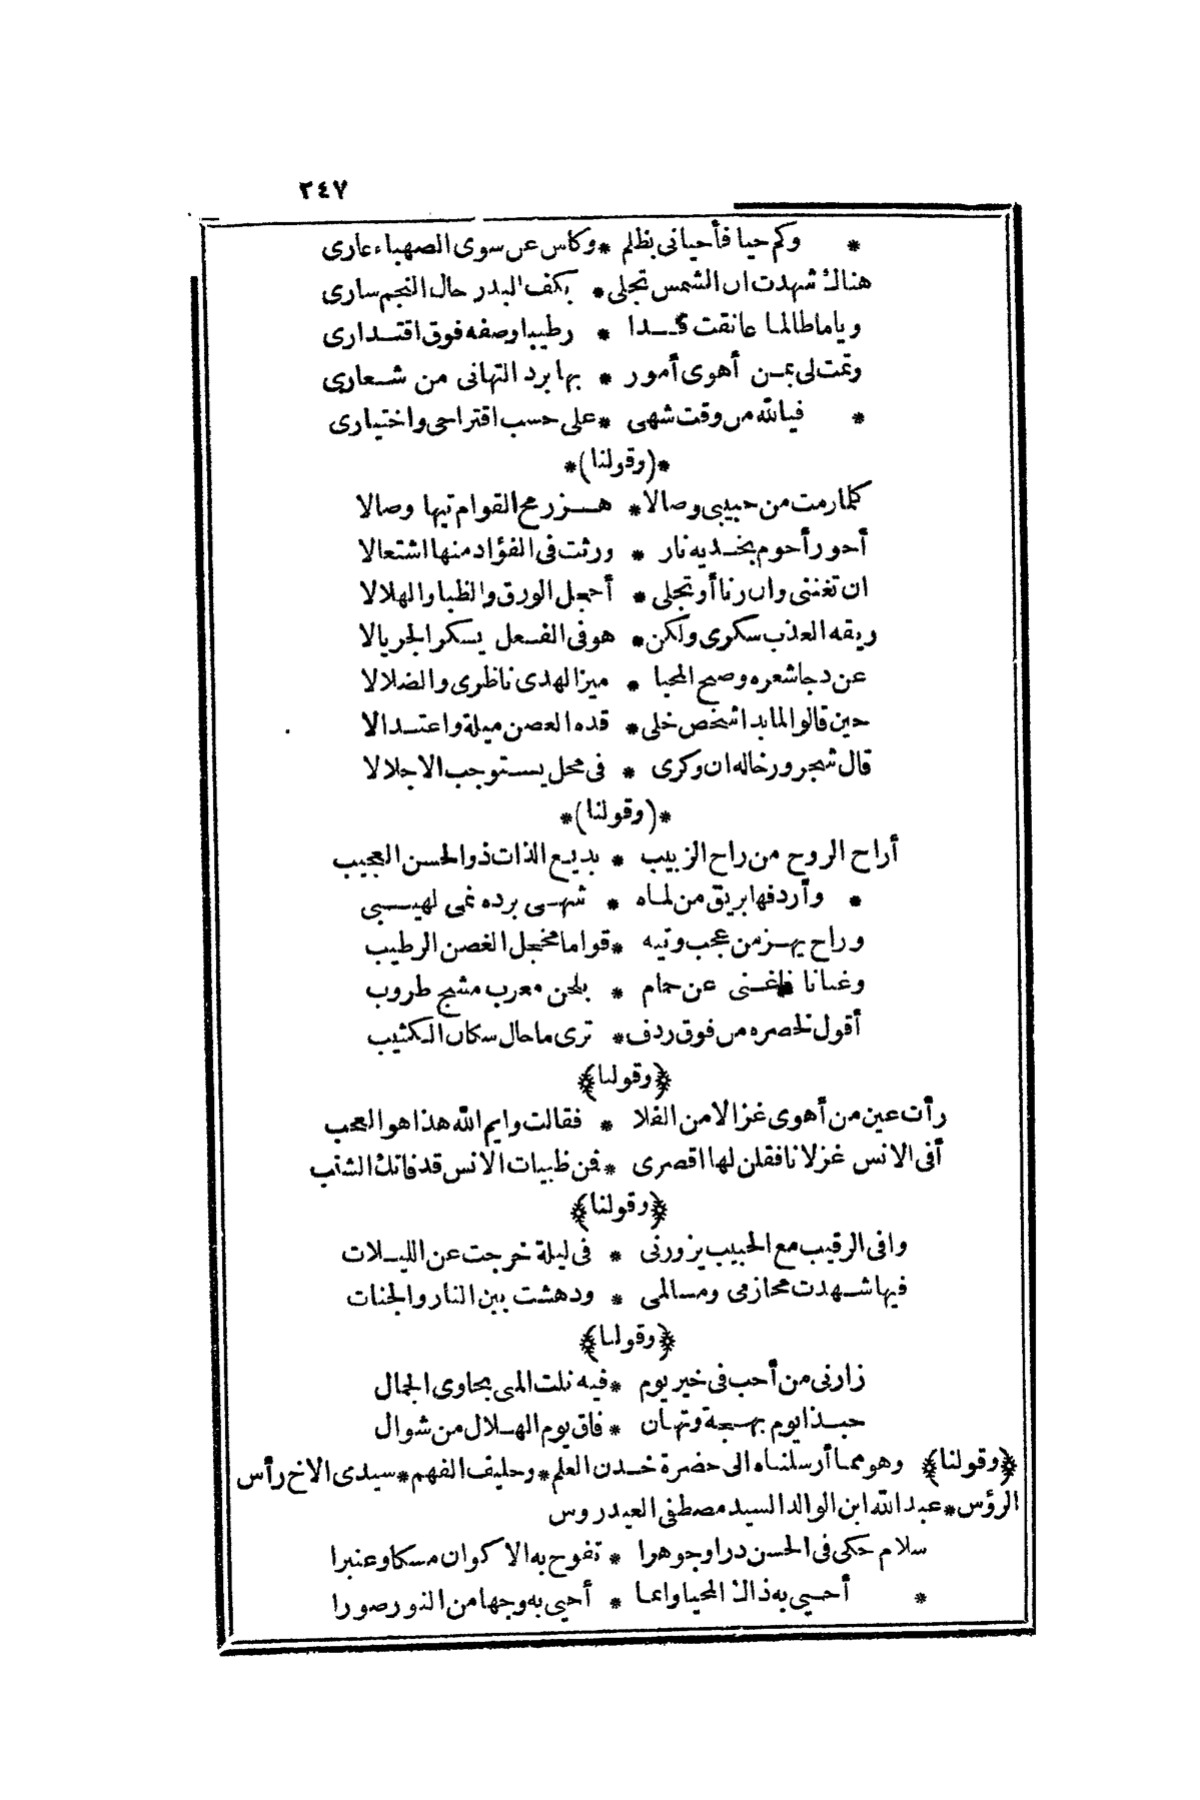 ٢٤٧
* وكم حيا فأحيانى بظلم * وكاس عن سوى الصهباء عارى
هناك شهدت ان الشمس تجلى * بكف البدر حال النجم سارى
وياما طالما عانقت قدا * رطيبا وصفه فوق اقتدارى
وتمت لى بمن أهوى أمور * بها برد التهانى من شعارى
* فيالله من وقت شهى * على حسب اقتراحى واختيارى
*(وقولنا)*
كلما رمت من حبيبى وصالا * هز رمح القوام تيها وصالا
أحور أحوم بخديه نار * ورثت فى الفؤاد منها اشتعالا
ان تغنى وان رنا أو تجلى * أخجل الورق والظبا والهلالا
ريقه العذب سكرى ولكن * هو فى الفعل يسكر الجريالا
عن دجا شعره وصبح المحيا * ميز الهدى ناظرى والضلالا
حين قالوا لما بدا شخص خلى * قده الغصن ميلة واعتدالا
قال شحرور خاله ان وكرى * فى محل يستوجب الاجلالا
*(وقولنا)*
أراح الروح من راح الزبيب * بديع الذات ذو الحسن العجيب
* وأردفها بريق من لماه * شهى برده نمى لهيبى
وراح يهز من عجب وتيه * قواما مخجل الغصن الرطيب
وغنانا فاغنى عن حمام * بلحن معرب مشج طروب
أقول لخصره من فوق ردف * ترى ما حال سكان الكثيب
﴿وقولنا﴾
رأت عين من أهوى غزالا من الفلا * فقالت وايم الله هذا هو العجب
أفى الانس غزلانا فقلن لها اقصرى * فمن ظبيات الانس قد فاتك الشنب
﴿وقولنا﴾
وافى الرقيب مع الحبيب يزورنى * فى ليلة خرجت عن الليلات
فيها شهدت محازمى ومسالمى * ودهشت بين النار والجنات
﴿وقولنا﴾
زارنى من أحب فى خير يوم * فيه نلت المنى بحاوى الجمال
حبذا يوم بهجة وتهان * فاق يوم الهلال من شوال
﴿وقولنا﴾ وهو مما أرسلناه الى حضرة خدن العلم * وحليف الفهم * سيدى الاخ رأس
الرؤس * عبد الله ابن الوالد السيد مصطفى العيدروس
سلام حكى فى الحسن درا وجوهرا * تفوح به الاكوان مسكا وعنبرا
* أحيي به ذاك المحيا وانما * أحيي به وجها من النور صورا